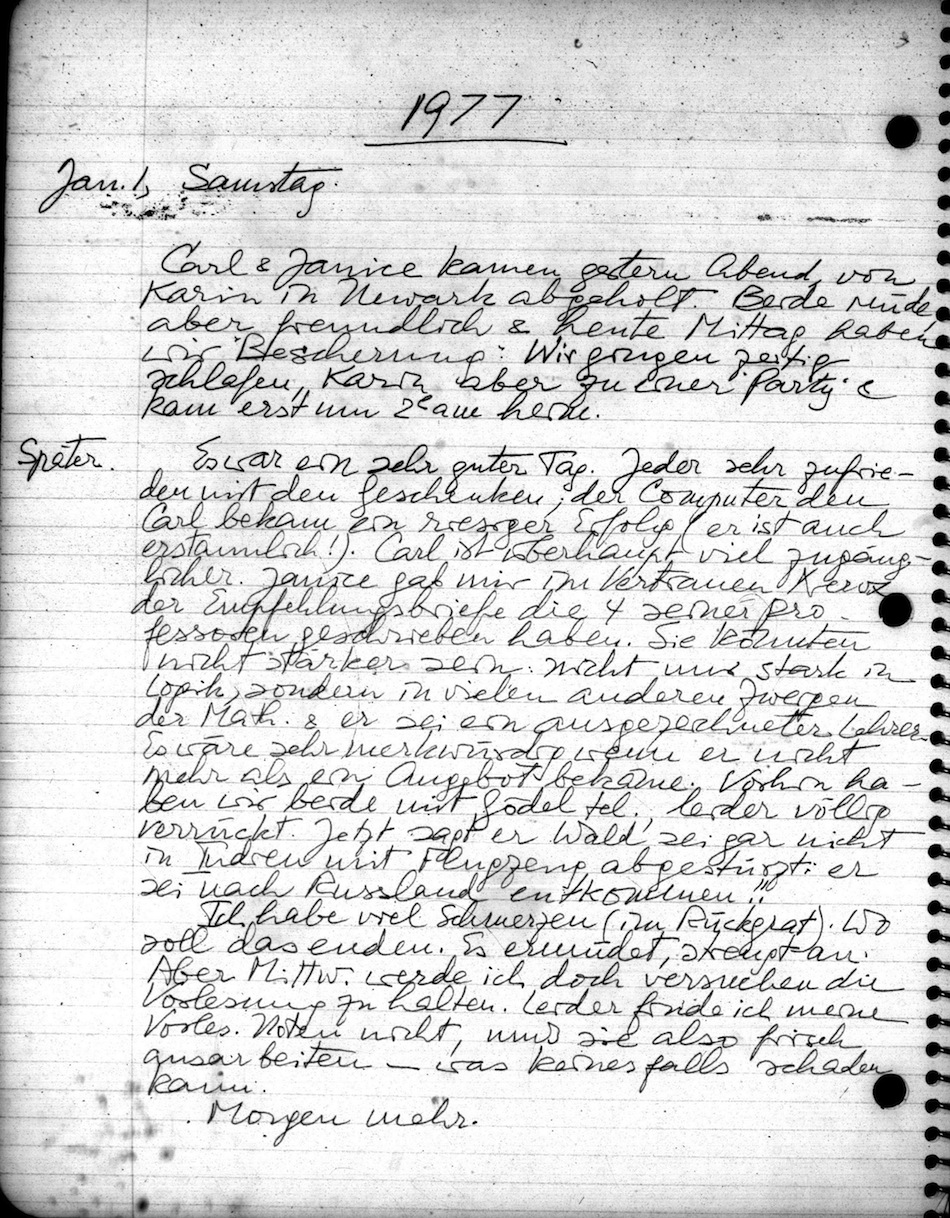 1977
Jan. 1, Samstag.
Carl & Janice kamen gestern Abend, von
Karin in Newark abgeholt. Beide müde
aber freundlich & heute Mittag haben
wir "Bescherung". Wir gingen zeitig
schlafen, Karin aber zu einer "Party" &
kam erst um 2 am heim.
Später. Es war ein sehr guter Tag. Jeder sehr zufrie-
den mit den Geschenken; der Computer den
Carl bekam ein riesiger Erfolg (er ist auch
erstaunlich!). Carl ist überhaupt viel zugäng-
licher. Janice gab mir im Vertrauen Xerox
der Empfehlungsbriefe die 4 seiner Pro-
fessoren geschrieben haben. Sie könnten
nicht stärker sein: nicht nur stark in
Logik, sondern in vielen anderen Zweigen
der Math. & er sei ein ausgezeichneter Lehrer.
Es wäre sehr merkwürdig wenn er nicht
mehr als ein Angebot bekäme. Vorhin ha-
ben wir beide mit Gödel tel., leider völlig
verrückt. Jetzt sagt er Wald sei gar nicht
in Indien mit Flugzeug abgestürzt: er
sei nach Russland entkommen!!
Ich habe viel Schmerzen (im Rückgrat). Wo
soll das enden. Es ermüdet, strengt an.
Aber Mittw. werde ich doch versuchen die
Vorlesung zu halten. Leider finde ich meine
Vorles. Noten nicht, muß sie also frisch
ausarbeiten — was keinesfalls schaden
kann.
Morgen mehr.